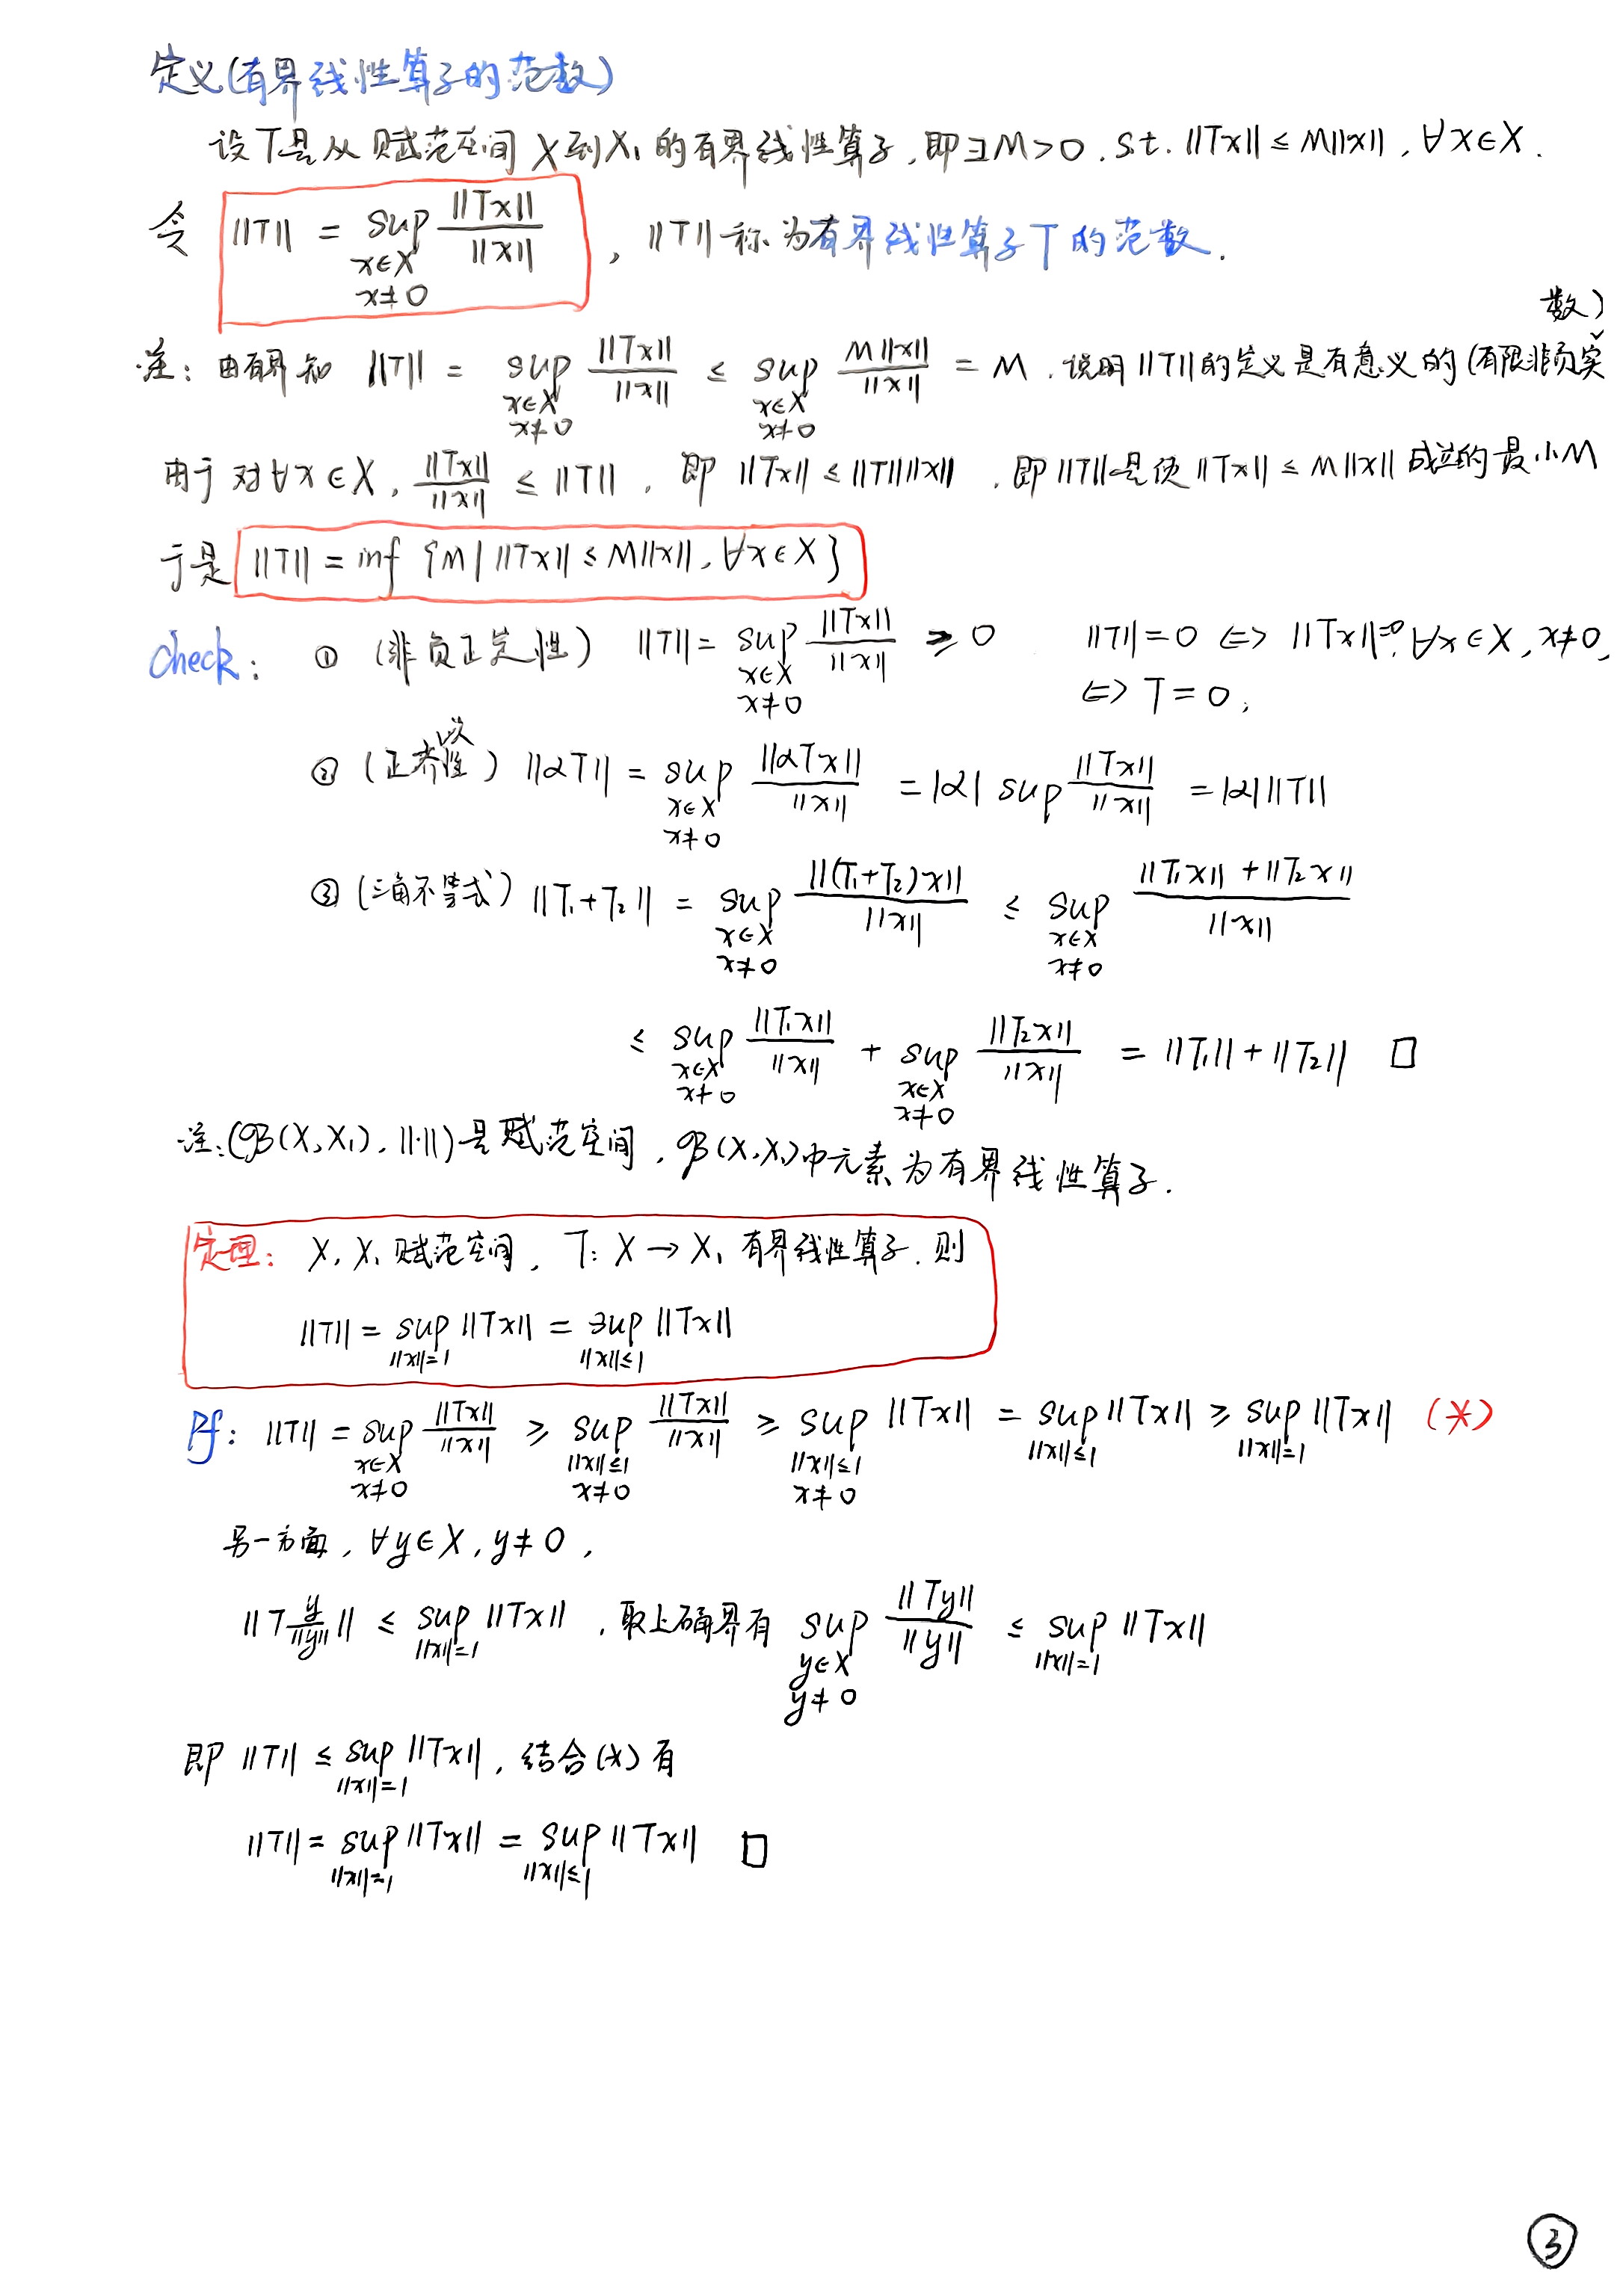 定义(有界线性算子的范数)
设T是从赋范空间X到X₁的有界线性算子,即∃M>0, s.t. ||Tx|| ≤ M||x||, ∀x∈X.
令 ||T|| = sup_{x∈X, x≠0} ||Tx||/||x|| , ||T||称为有界线性算子T的范数.
注: 由有界知 ||T|| = sup_{x∈X, x≠0} ||Tx||/||x|| ≤ sup_{x∈X, x≠0} M||x||/||x|| = M, 说明||T||的定义是有意义的(有限非负实数)
由于对∀x∈X, ||Tx||/||x|| ≤ ||T||, 即 ||Tx|| ≤ ||T||||x||, 即||T||是使||Tx|| ≤ M||x||成立的最小M
于是 ||T|| = inf {M | ||Tx|| ≤ M||x||, ∀x∈X}
Check: ① (非负正定性) ||T|| = sup_{x∈X, x≠0} ||Tx||/||x|| ≥ 0 ||T||=0 ⇔ ||Tx||=0, ∀x∈X, x≠0,
⇔ T=0,
② (正齐次性) ||αT|| = sup_{x∈X, x≠0} ||αTx||/||x|| = |α| sup ||Tx||/||x|| = |α|||T||
③ (三角不等式) ||T₁+T₂|| = sup_{x∈X, x≠0} ||(T₁+T₂)x||/||x|| ≤ sup_{x∈X, x≠0} (||T₁x||+||T₂x||)/||x||
≤ sup_{x∈X, x≠0} ||T₁x||/||x|| + sup_{x∈X, x≠0} ||T₂x||/||x|| = ||T₁||+||T₂|| □
注:(ℬ(X,X₁), ||·||)是赋范空间, ℬ(X,X₁)中元素为有界线性算子.
定理: X, X₁赋范空间, T: X→X₁有界线性算子, 则
||T|| = sup_{||x||=1} ||Tx|| = sup_{||x||≤1} ||Tx||
Pf: ||T|| = sup_{x∈X, x≠0} ||Tx||/||x|| ≥ sup_{||x||≤1, x≠0} ||Tx||/||x|| ≥ sup_{||x||≤1, x≠0} ||Tx|| = sup_{||x||≤1} ||Tx|| ≥ sup_{||x||=1} ||Tx|| (*)
另一方面, ∀y∈X, y≠0,
||T y/||y|| || ≤ sup_{||x||=1} ||Tx||, 取上确界有 sup_{y∈X, y≠0} ||Ty||/||y|| ≤ sup_{||x||=1} ||Tx||
即 ||T|| ≤ sup_{||x||=1} ||Tx||, 结合(*)有
||T|| = sup_{||x||=1} ||Tx|| = sup_{||x||≤1} ||Tx|| □
③